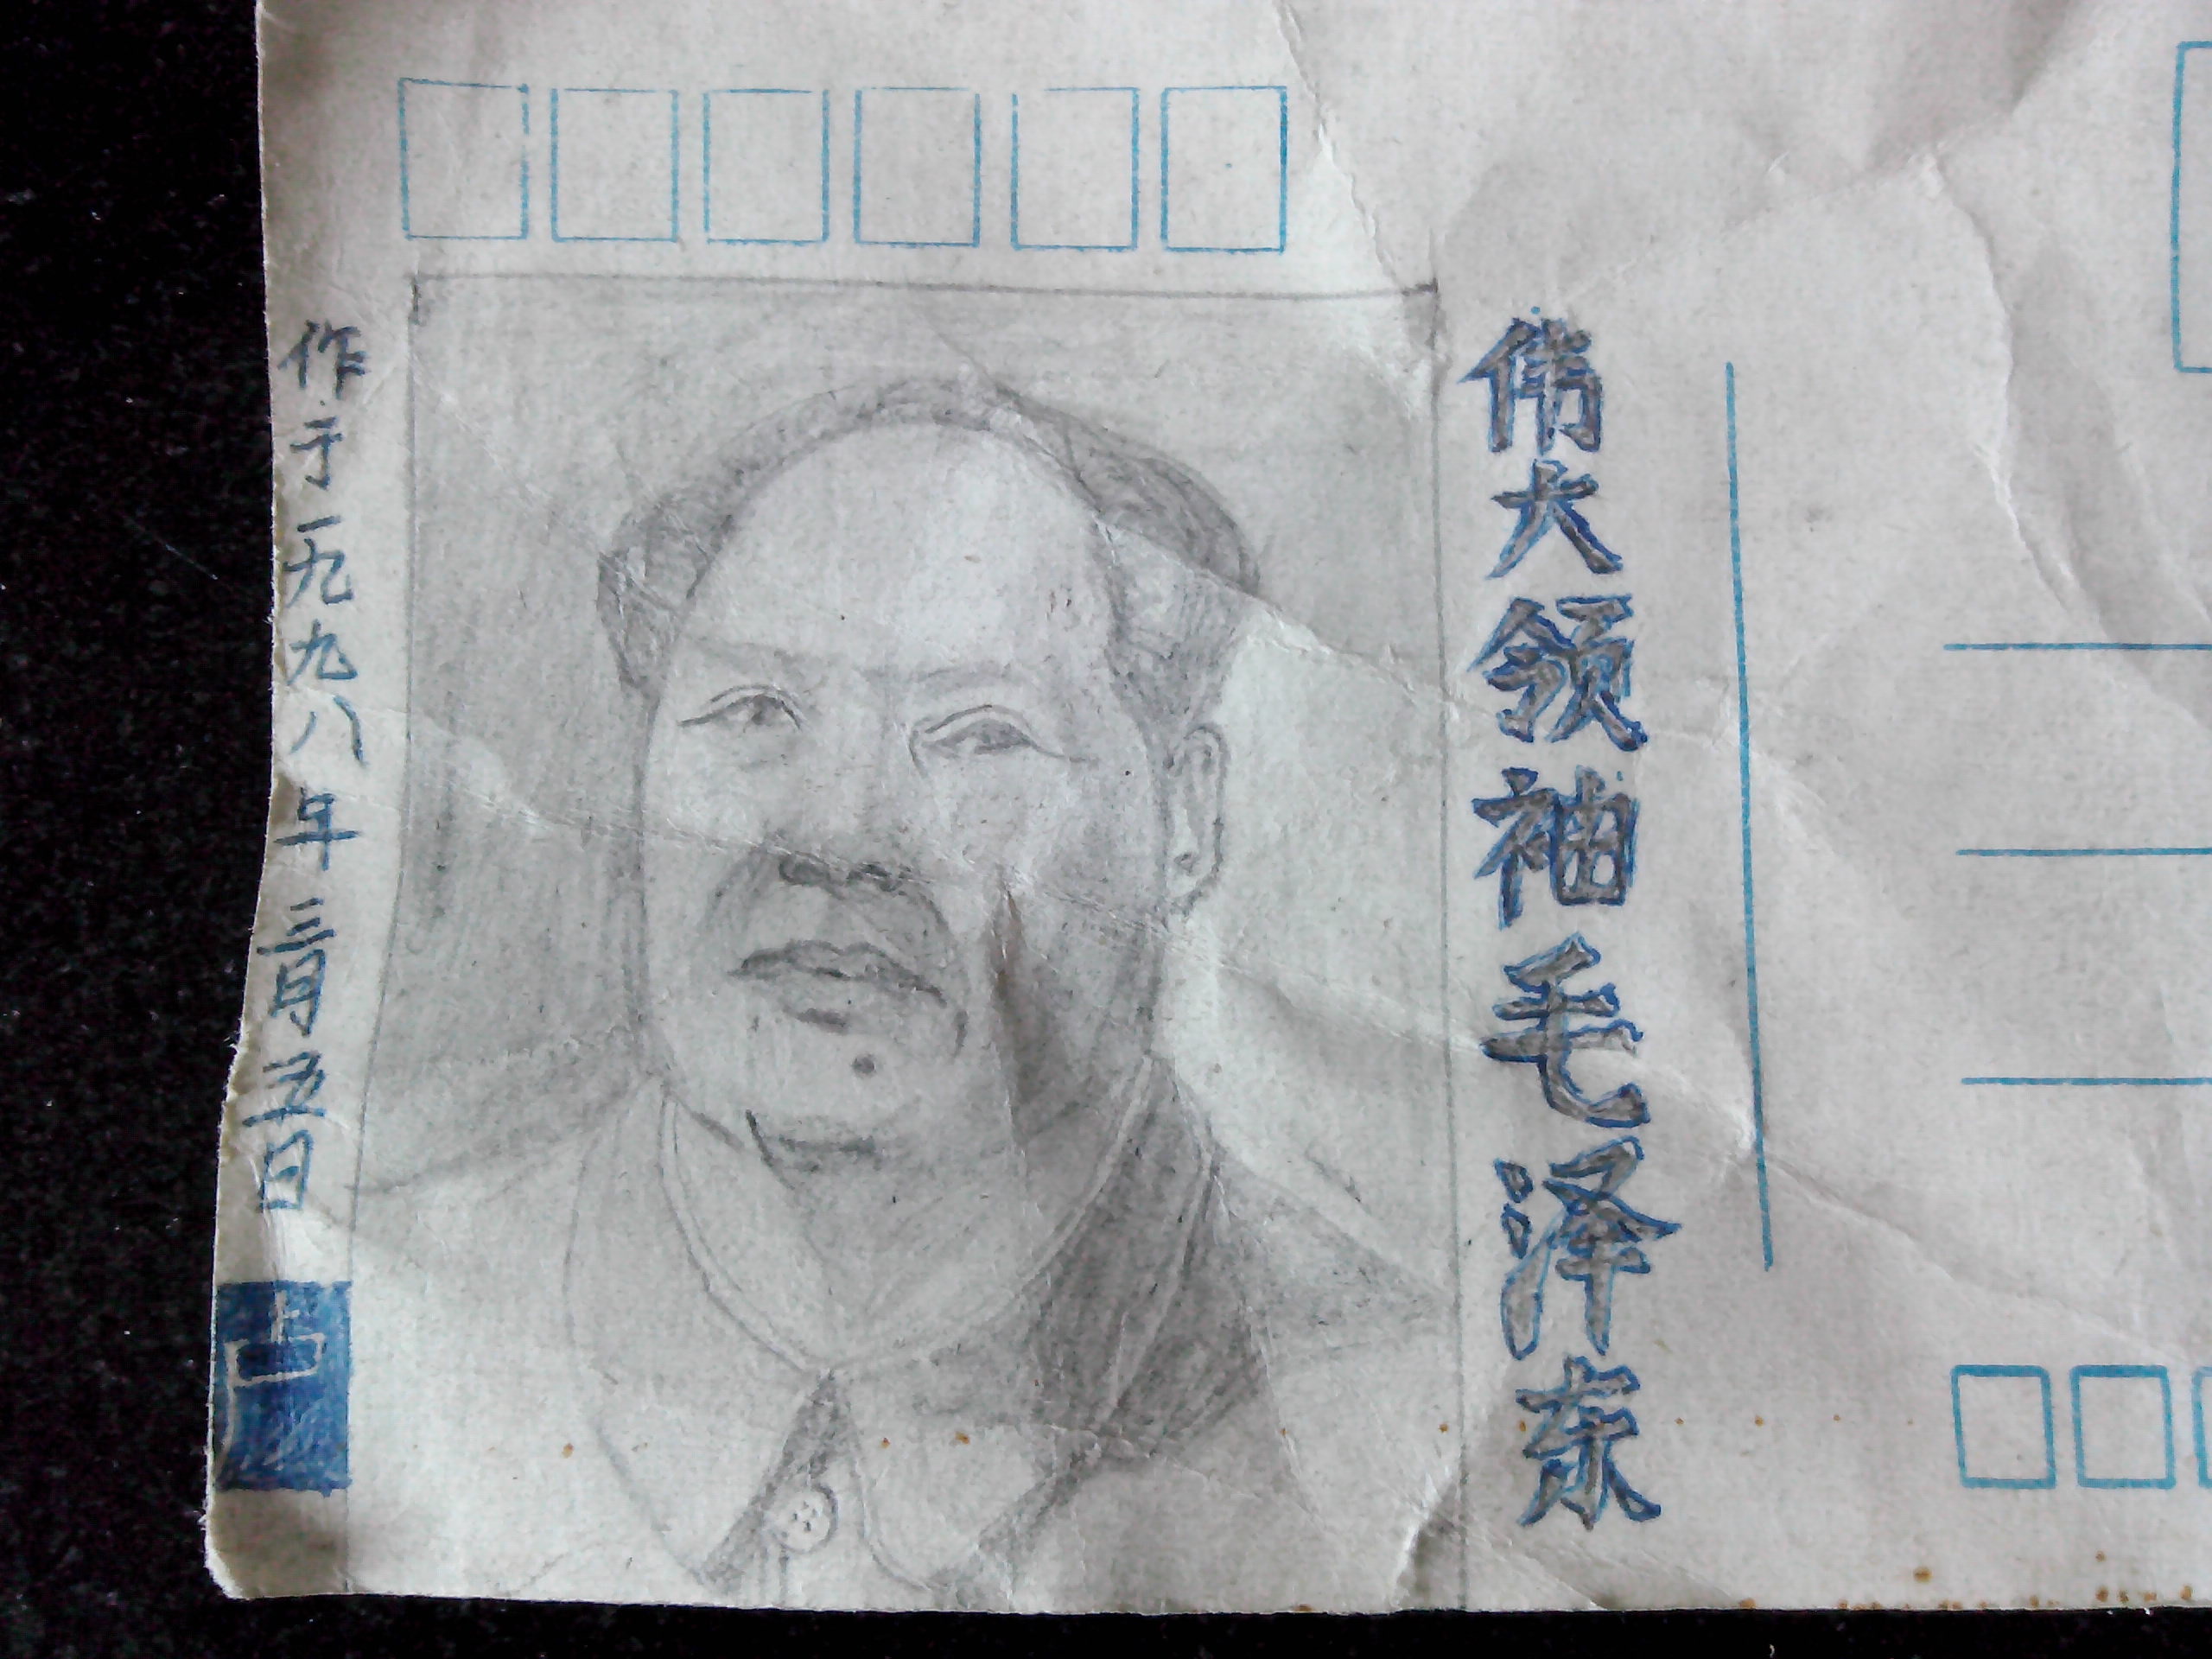 作于一九九八年三月五日
伟大领袖毛泽东